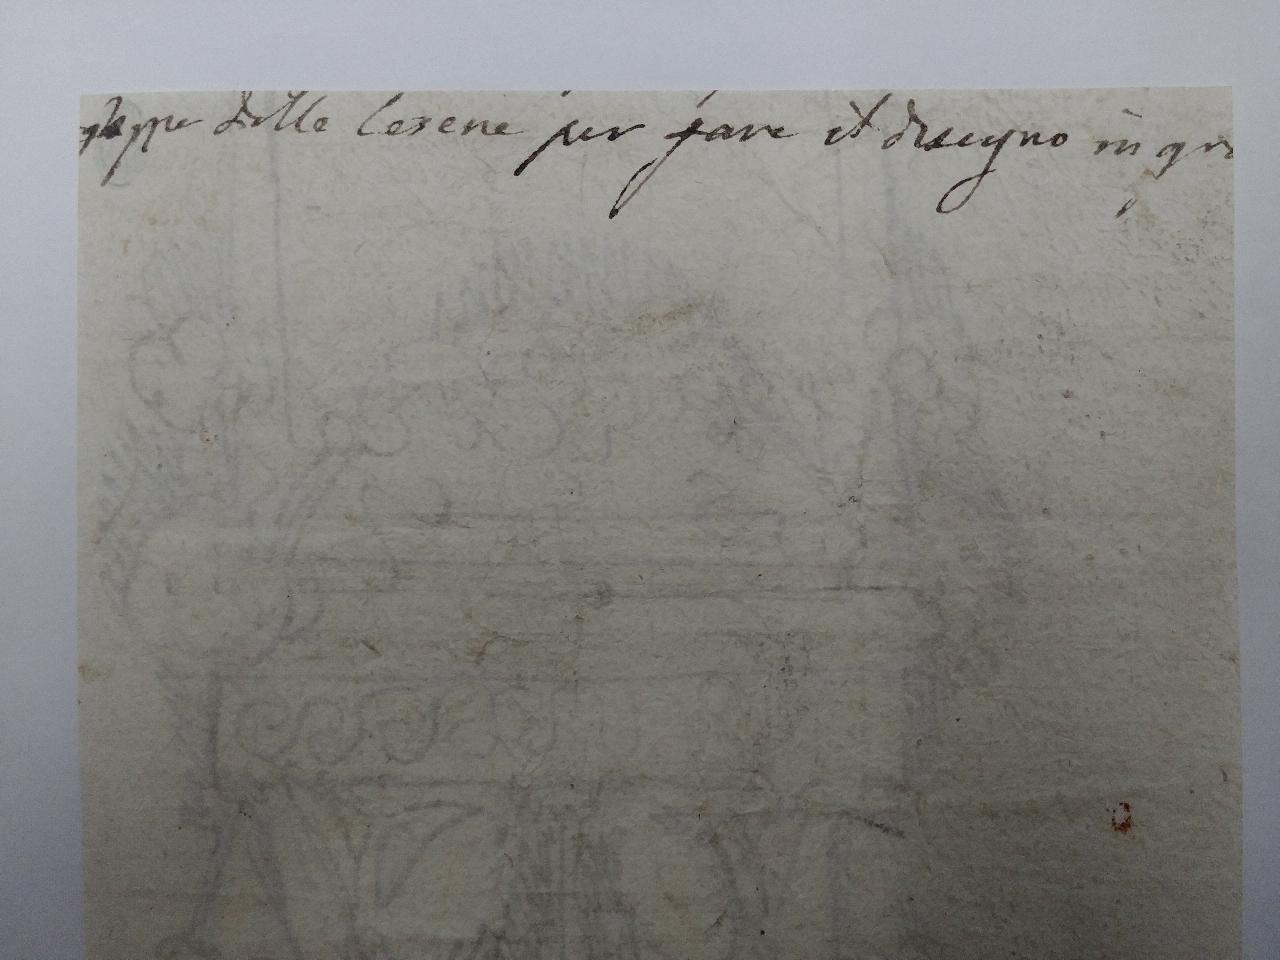 delle Lesene per fare il disegno in